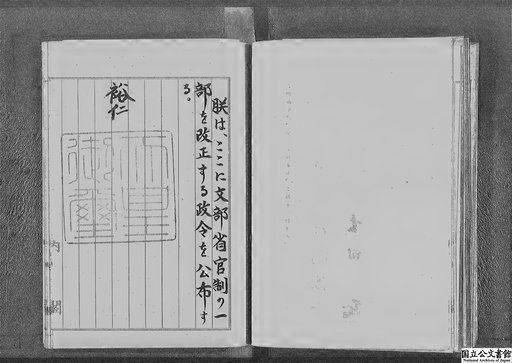 朕は、ここに文部省官制の一
部を改正する政令を公布す
る。
裕仁
天皇
御璽
内閣
国立公文書館
National Archives of Japan